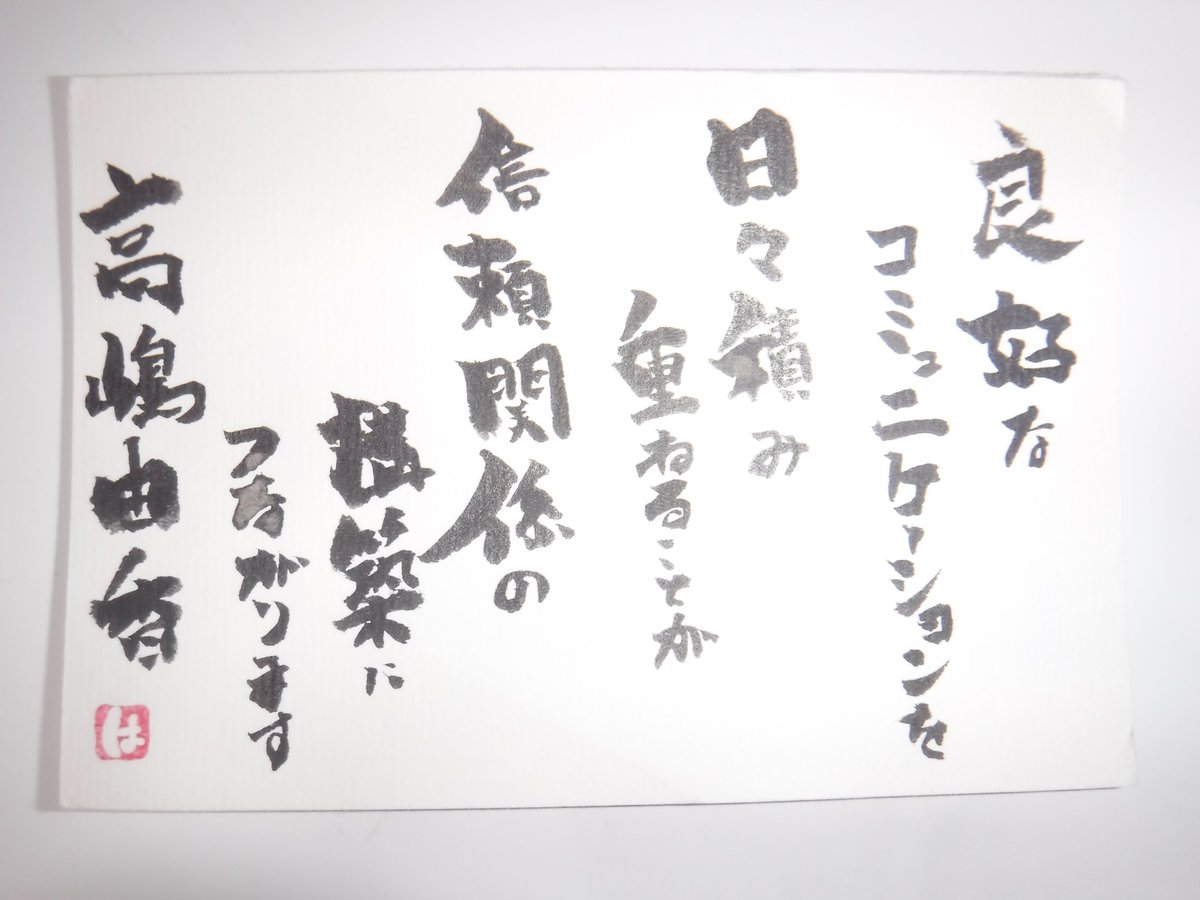 良好な
コミュニケーションを
日々積み
重ねることが
信頼関係の
構築に
つながります
高嶋由香
は